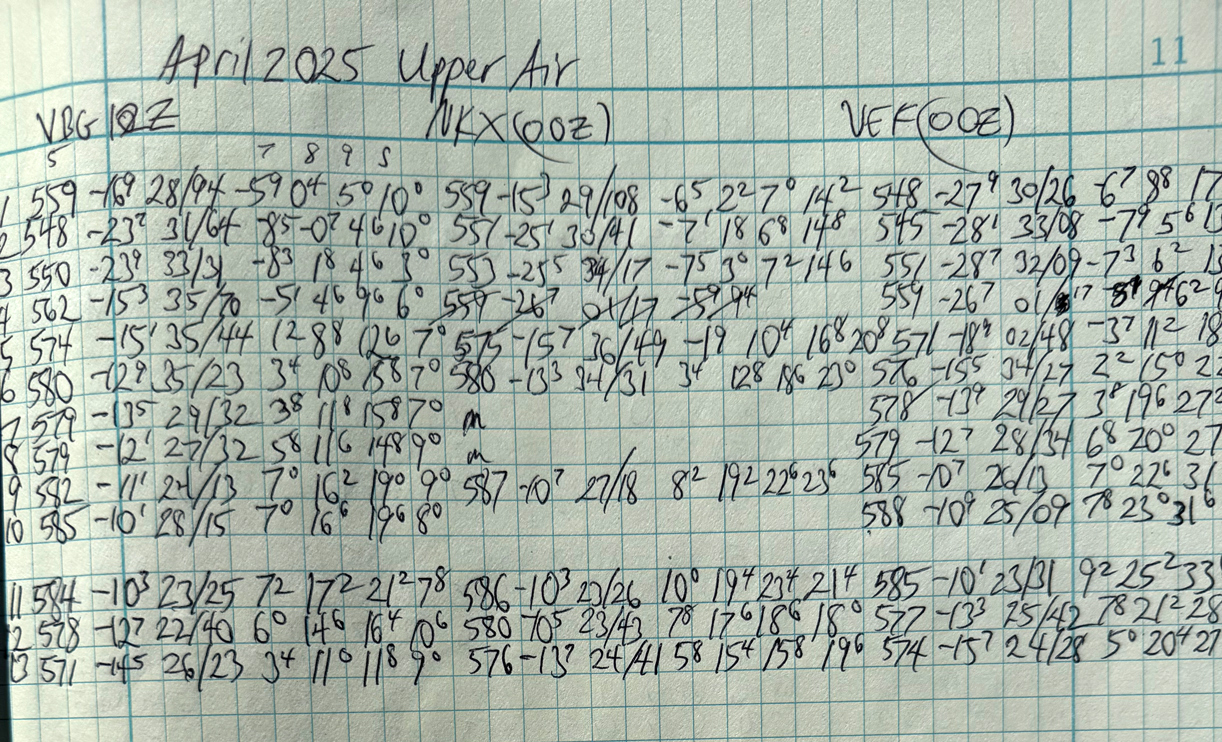 April 2025 Upper Air 11
VBG 12Z NKX(00Z) VEF(00Z)
5 7 8 9 S
1 559 -16⁹ 28/94 -5⁹ 0⁴ 5⁰ 10⁰ 559 -15³ 29/108 -6⁵ 2² 7⁰ 14² 548 -27⁹ 30/26 -6⁷ 8⁸ 17
2 548 -23⁷ 31/64 -8⁵ -0⁷ 4⁶ 10⁰ 551 -25¹ 30/41 -7¹ 1⁸ 6⁸ 14⁸ 545 -28¹ 33/08 -7⁹ 5⁶ 13
3 550 -23⁹ 33/31 -8³ 1⁸ 4⁶ 3⁰ 553 -25⁵ 34/17 -7⁵ 3⁰ 7² 14⁶ 551 -28⁷ 32/09 -7³ 6² 15
4 562 -15³ 35/70 -5¹ 4⁶ 9⁶ 6⁰ 559 -26⁷ 01/17 -5⁹ 9⁴ 559 -26⁷ 01/17 6²
5 574 -15¹ 35/44 1² 8⁸ 12⁶ 7⁰ 575 -15⁷ 36/49 -1⁹ 10⁴ 16⁸ 20⁸ 571 -18⁹ 02/48 -3⁷ 11² 18
6 580 -12⁹ 35/23 3⁴ 10⁸ 15⁸ 7⁰ 580 -13³ 34/31 3⁴ 12⁸ 18⁶ 23⁰ 576 -15⁵ 34/27 2² 15⁰ 22
7 579 -13⁵ 29/32 3⁸ 11⁸ 15⁸ 7⁰ m 578 -13⁹ 29/27 3⁸ 19⁶ 27²
8 579 -12¹ 27/32 5⁸ 11⁶ 14⁸ 9⁰ m 579 -12⁷ 28/34 6⁸ 20⁰ 27
9 582 -11¹ 24/13 7⁰ 16² 19⁰ 9⁰ 587 -10⁷ 27/18 8² 19² 22⁶ 23⁶ 585 -10⁷ 26/13 7⁰ 22⁶ 31
10 585 -10¹ 28/15 7⁰ 16⁶ 19⁶ 8⁰ 588 -10⁹ 25/09 7⁸ 23⁰ 31⁶
11 584 -10³ 23/25 7² 17² 21² 7⁸ 586 -10³ 23/26 10⁰ 19⁴ 23⁴ 21⁴ 585 -10¹ 23/31 9² 25² 33
12 578 -12⁷ 22/40 6⁰ 14⁶ 16⁴ 10⁶ 580 -10⁵ 23/43 7⁸ 17⁶ 18⁶ 18⁰ 577 -13³ 25/42 7⁸ 21² 28
13 571 -14⁵ 26/23 3⁴ 11⁰ 11⁸ 9⁰ 576 -13⁷ 24/41 5⁸ 15⁴ 15⁸ 19⁶ 574 -15⁷ 24/28 5⁰ 20⁴ 27